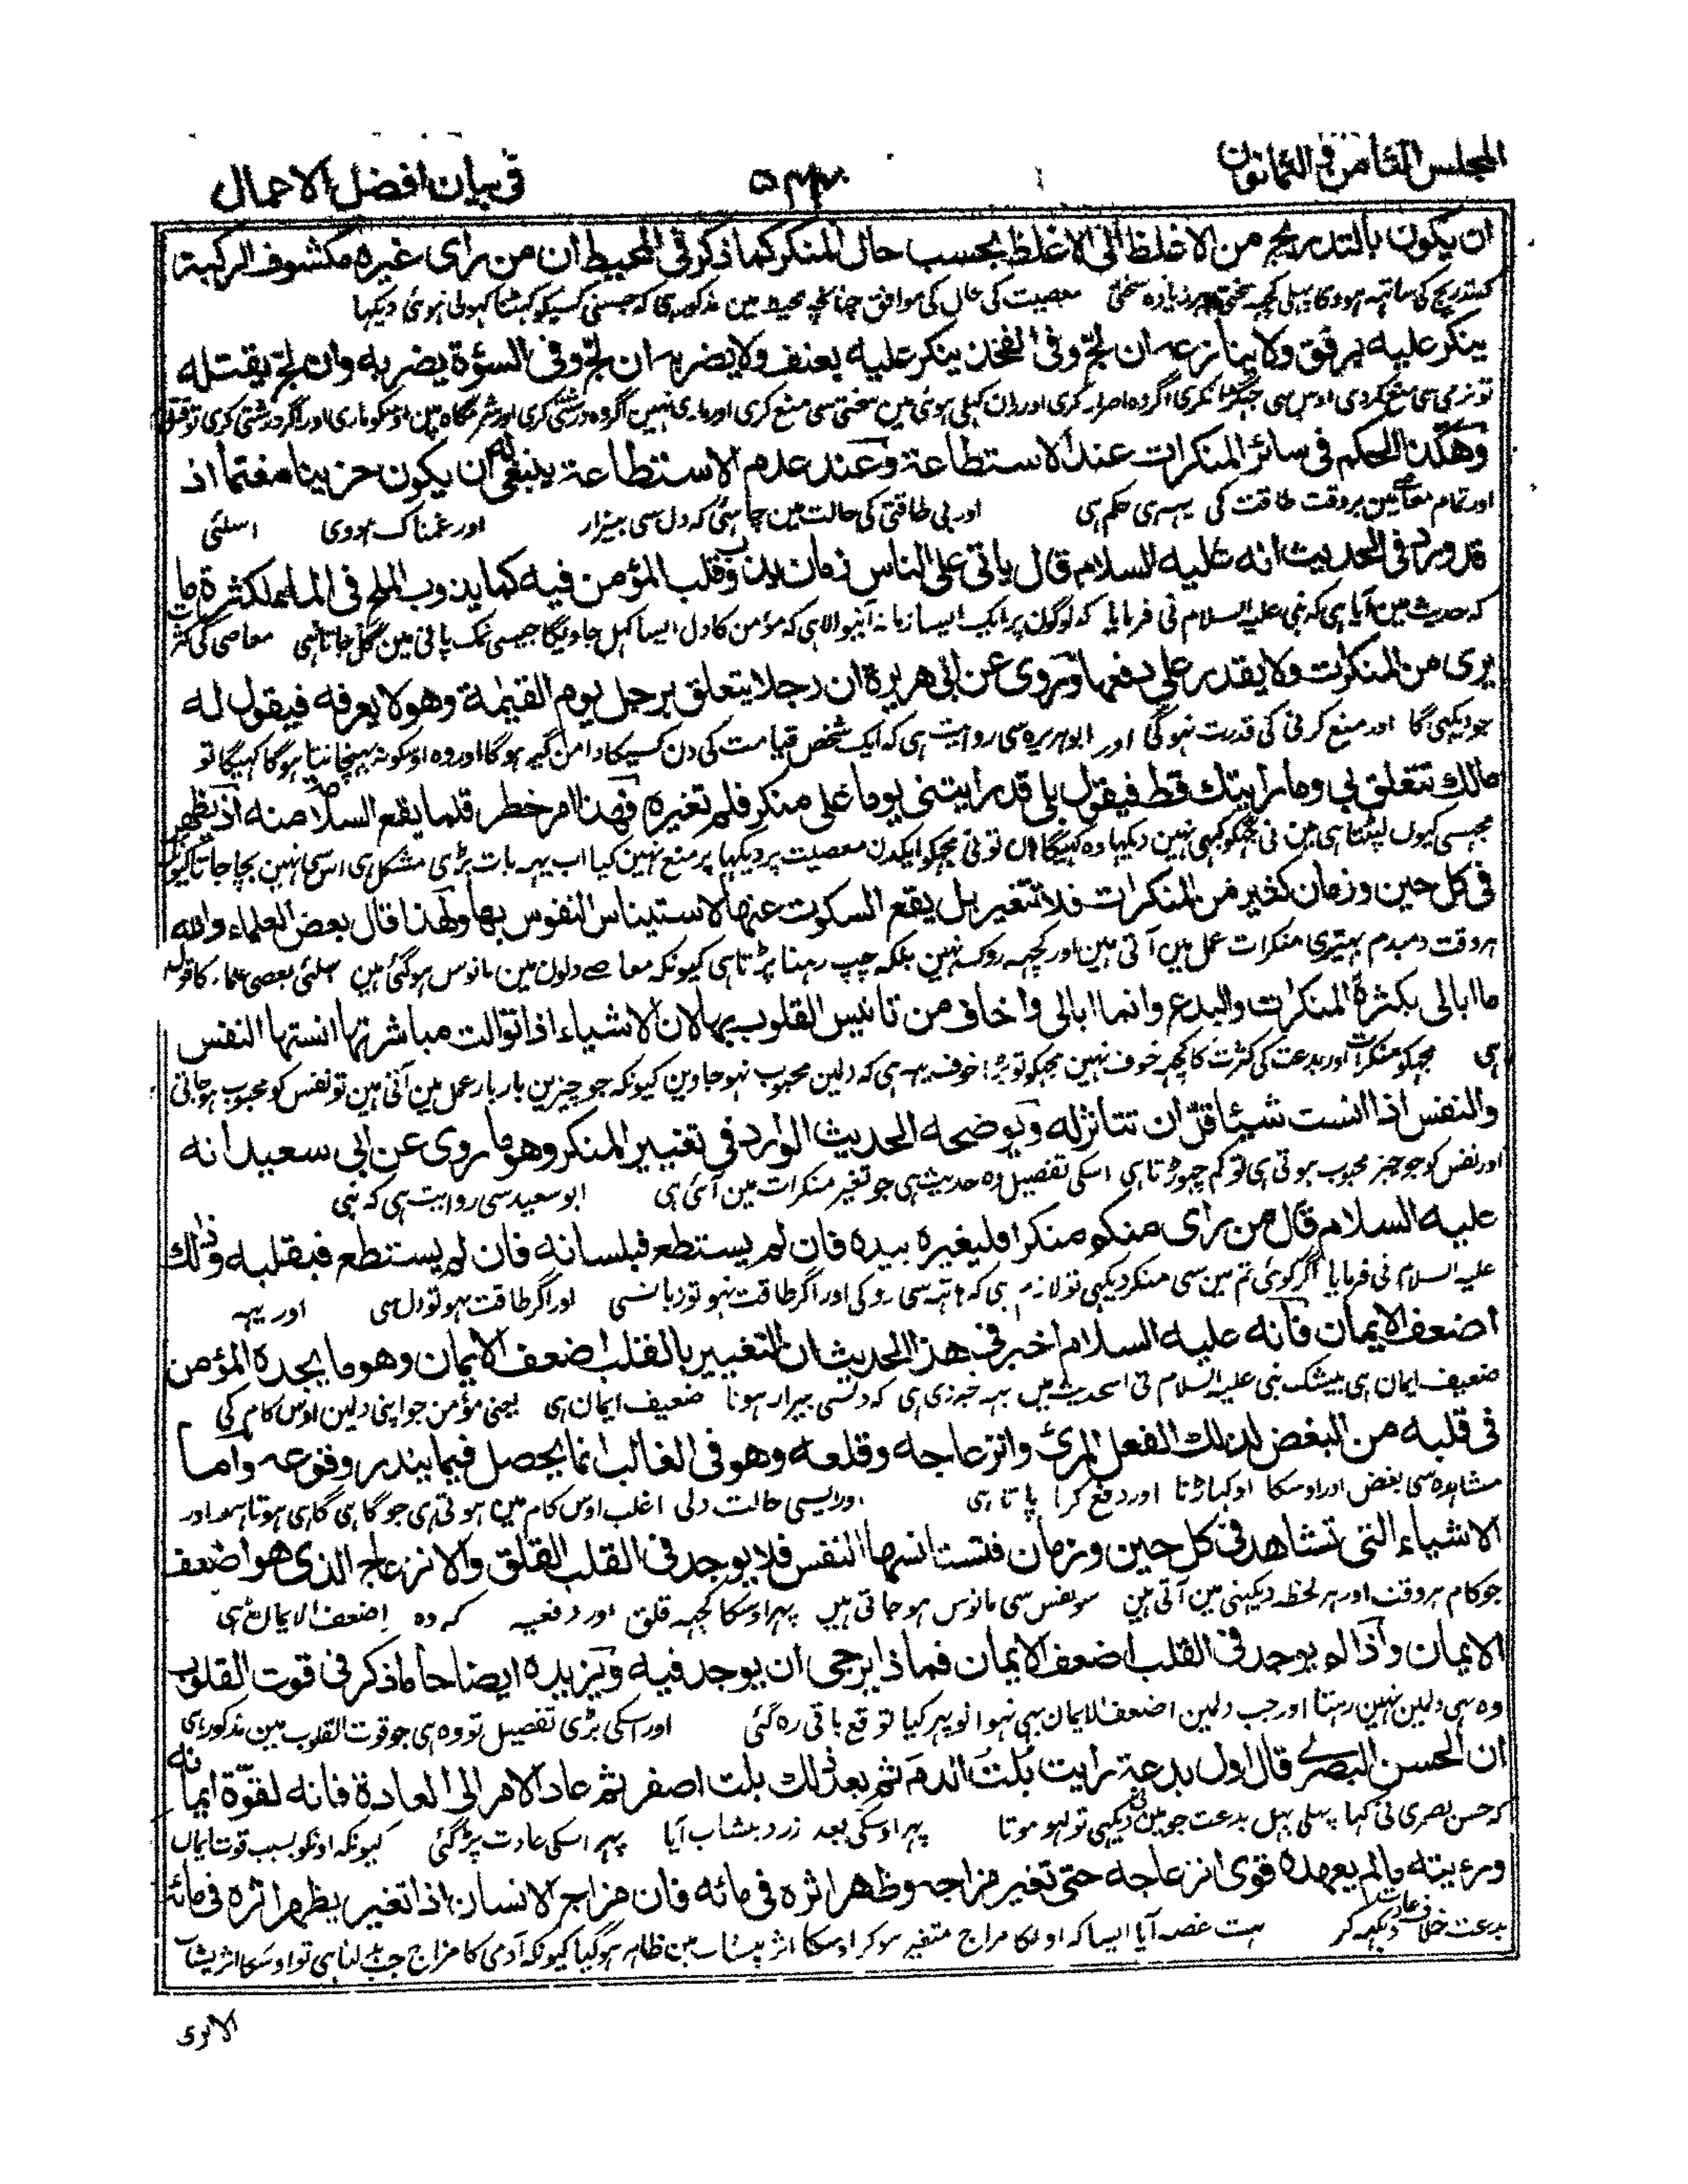 المجلس الثامن و الثمانون
۵۴۴
فی بیان افضل الاعمال
ان یکون بالتدریج من الاغلظ الی الاغلظ بحسب حال المنکر کما ذکر فی المحیط ان من رای غیره مکشوف الرکبة
کہ تدریج کی ساتہہ ہووی پہلی کچہہ سختی پہر زیادہ سختی معصیت کی حال کی موافق چنانچہ محیط مین مذکور ہی کہ جسنی کسیکو گہٹنا کہولی ہوئی دیکہا
ینکر علیه برفق ولا ینازعه ان لجّ وفی الفخذ ینکر علیه بعنف ولا یضربه ان لجّ وفی السؤة یضربه وان لجّ یقتله
تو نرمی سی منع کردی اوس سی جہگڑا نکری اگر وہ اصرار کری اور ران کہلی ہوئی مین سختی سی منع کری اور ماری نہین اگر وہ درشتی کری اور شرمگاہ مین اوسکو ماری اور اگر درشتی کری تو قتل
وهکذا الحکم فی سائر المنکرات عند الاستطاعة وعند عدم الاستطاعة ینبغی له ان یکون حزینا مغتما اذ
اور تمام معاصی مین بروقت طاقت کی یہی حکم ہی اور بی طاقتی کی حالت مین چاہئی کہ دل سی بیزار اور غمناک ہووی اسلئی
قد ورد فی الحدیث انه علیه السلام قال یاتی علی الناس زمان یذوب قلب المؤمن فیه کما یذوب الملح فی الماء لکثرة ما
کہ حدیث مین آیا ہی کہ نبی علیہ السلام نی فرمایا کہ لوگون پر ایک ایسا زمانہ آنیوالا ہی کہ مؤمن کا دل ایسا گہل جاویگا جیسی نمک پانی مین گہل جاتا ہی معاصی کی کثرت
یری من المنکرات ولا یقدر علی دفعها وروی عن ابی هریرة ان رجلا یتعلق برجل یوم القیٰمة وهو لا یعرفه فیقول له
جو دیکہی گا اور منع کرنی کی قدرت نہوگی اور ابو ہریرہ سی روایت ہی کہ ایک شخص قیامت کی دن کسیکا دامن گیر ہوگا اور وہ اوسکو نہ پہچانتا ہوگا کہیگا تو
مالك تتعلق بی وما رایتك قط فیقول بلی قد رایتنی یوما علی منکر فلم تغیره فهذا امر خطر قلما یقع السلامة منه اذ یظهر
مجہسی کیوں لپٹتا ہی مین نی تجہکو کبہی نہین دیکہا وہ کہیگا ہاں تو نی مجہکو ایکدن معصیت پر دیکہا پر منع نہین کیا اب یہہ بات بڑی مشکل ہی اس سی نہین بچا جاتا کیونکہ
فی کل حین وزمان کثیر من المنکرات فلا تتغیر بل یقع السکوت عنها لاستیناس النفوس بها ولهذا قال بعض العلماء والله
ہر وقت دمبدم بہتیری منکرات عمل مین آتی ہین اور کچہہ روک نہین بلکہ چپ رہنا پڑتا ہی کیونکہ معاصی دلون مین مانوس ہوگئی ہین اسلئی بعضی علماء کا قول
ما ابالی بکثرة المنکرات والبدع وانما ابالی واخاف من تانیس القلوب بها لان الاشیاء اذا توالت مباشرتها انستها النفس
ہی مجہکو منکرات اور بدعت کی کثرت کا کچہہ خوف نہین مجہکو تو بڑا خوف یہہ ہی کہ دلین محبوب نہو جاوین کیونکہ جو چیزین بار بار عمل مین آتی ہین تو نفس کو محبوب ہو جاتی
والنفس اذا انست شیئا قلّ ان تتاثر له ویوضحه الحدیث الوارد فی تغییر المنکر وهو ما روی عن ابی سعید انه
اور نفس کو جو چیز محبوب ہوتی ہی تو کم چہوڑتا ہی اسکی تفصیل وہ حدیث ہی جو تغیر منکرات مین آئی ہی ابو سعید سی روایت ہی کہ نبی
علیه السلام قال من رای منکم منکرا فلیغیره بیده فان لم یستطع فبلسانه فان لم یستطع فبقلبه وذلك
علیہ السلام نی فرمایا اگر کوئی تم مین سی منکر دیکہی تو لازم ہی کہ ہاتہہ سی روکی اور اگر طاقت نہو تو زبانسی اور اگر طاقت نہو تو دل سی اور یہہ
اضعف الایمان فانه علیه السلام اخبر فی هذا الحدیث ان التغییر بالقلب اضعف الایمان وهو ما یجده المؤمن
ضعیف ایمان ہی بیشک نبی علیہ السلام نی اس حدیث مین یہہ خبر دی ہی کہ دلسی بیزار ہونا ضعیف ایمان ہی یعنی مؤمن جو اپنی دلین اوس کام کی
فی قلبه من البغض لذلك الفعل المرئ وانزعاجه وقلعه وهو فی الغالب انما یحصل فیما یندر وقوعه واما
مشاہدہ سی بغض اور اوسکا اوکہاڑنا اور دفع کرنا پاتا ہی اور ایسی حالت دلی اغلب اوس کام مین ہوتی ہی جو گاہی گاہی ہوتا ہی اور
الاشیاء التی تشاهد فی کل حین وزمان فتستانسها النفس فلا یوجد فی القلب القلق والانزعاج الذی هو اضعف
جو کام ہر وقت اور ہر لحظہ دیکہنی مین آتی ہین سو نفس سی مانوس ہو جاتی ہین پہر اوسکا کچہہ قلق اور دفعیہ کہ وہ اضعف الایمان ہی
الایمان واذا لم یوجد فی القلب اضعف الایمان فماذا یرجی ان یوجد فیه ویزیده ایضاحا ما ذکر فی قوت القلوب
وہ ہی دلین نہین رہتا اور جب دلین اضعف الایمان بہی نہوا تو پہر کیا توقع باقی رہ گئی اور اسکی بڑی تفصیل تو وہ ہی جو قوت القلوب مین مذکور ہی
ان الحسن البصری قال اول بدعة رایت بُلتُ الدمَ ثم بعد ذلك بلت اصفر ثم عاد الامر الی العادة فانه لقوّة ایمانه
کہ حسن بصری نی کہا پہلی پہل بدعت جو مین نی دیکہی تو لہو موتا پہر اوسکی بعد زرد پیشاب آیا پہر اسکی عادت پڑگئی کیونکہ اونکو بسبب قوت ایمان
ورءیته ما لم یعهده قوی انزعاجه حتی تغیر مزاجه وظهر اثره فی مائه فان مزاج الانسان اذا تغیر یظهر اثره فی مائه
بدعت خلاف عادت دیکہہ کر بہت غصہ آیا ایسا کہ اونکا مزاج متغیر ہوکر اوسکا اثر پیشاب مین ظاہر ہوگیا کیونکہ آدمی کا مزاج جب بدلتا ہی تو اوسکا اثر پیشاب
الا تری